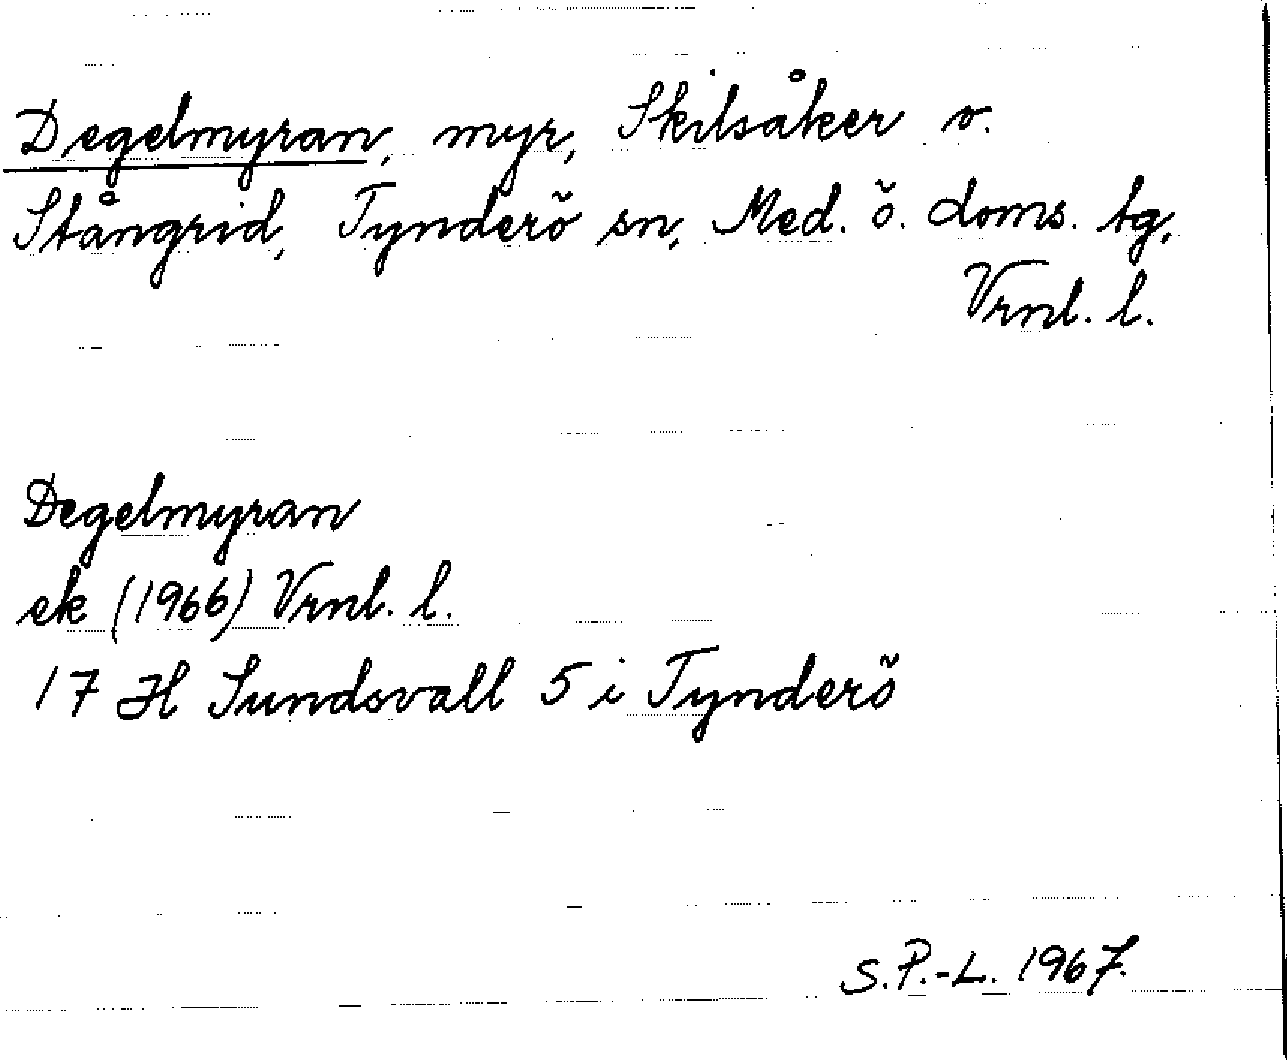 Degelmyran, myr, Skilsåker o.
Stångrid, Tynderö sn, Med. ö. doms. tg,
Vrnl. l.
Degelmyran
ek (1966) Vrnl. l.
17 H Sundsvall 5 i Tynderö
S.P.-L. 1967.